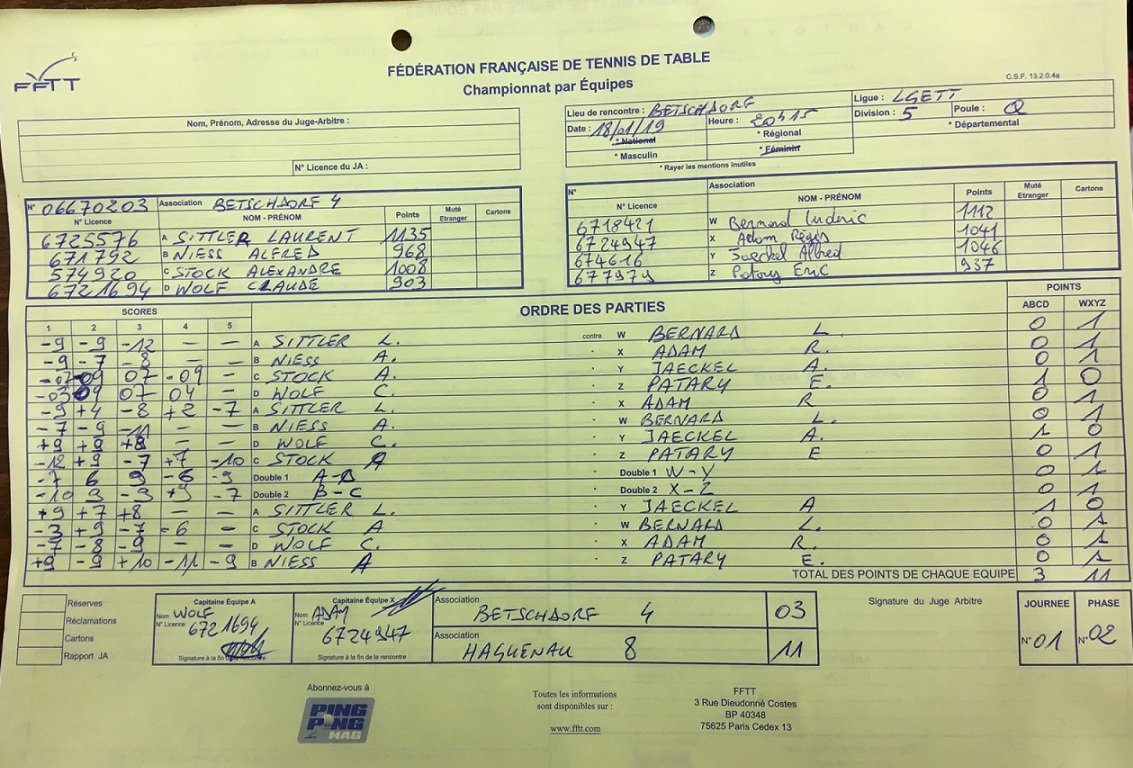 FFTT
FÉDÉRATION FRANÇAISE DE TENNIS DE TABLE
Championnat par Équipes
C.S.F. 13.2.0.4a
Nom, Prénom, Adresse du Juge-Arbitre :
N° Licence du JA :
Lieu de rencontre : BETSCHDORF Ligue : LGETT
Date : 18/01/19 Heure : 20h15 Division : 5 Poule : Q
* National * Régional * Départemental
* Masculin * Féminin
* Rayer les mentions inutiles
N° 06670203 Association BETSCHDORF 4
N° Licence NOM - PRÉNOM Points Muté Etranger Cartons
6725576 A SITTLER LAURENT 1135
671792 B NIESS ALFRED 968
574920 C STOCK ALEXANDRE 1008
6721694 D WOLF CLAUDE 903
N° Association
N° Licence NOM - PRÉNOM Points Muté Etranger Cartons
6718421 W Bernard Ludovic 1112
6724947 X Adam Régis 1041
674616 Y Jaeckel Alfred 1046
677979 Z Patary Eric 937
SCORES ORDRE DES PARTIES POINTS
1 2 3 4 5 ABCD WXYZ
-9 -9 -12 — — A SITTLER L. contre W BERNARD L. 0 1
-9 -7 -8 — — B NIESS A. X ADAM R. 0 1
-07 -09 07 -09 — C STOCK A. Y JAECKEL A. 0 1
-03 09 07 04 — D WOLF C. Z PATARY E. 1 0
-9 +4 -8 +2 -7 A SITTLER L. X ADAM R 0 1
-7 -9 -11 — — B NIESS A. W BERNARD L. 0 1
+9 +9 +8 — — D WOLF C. Y JAECKEL A. 1 0
-12 +9 -7 +7 -10 C STOCK A Z PATARY E 0 1
-7 6 9 -6 -9 Double 1 A-D Double 1 W-Y 0 1
-10 9 -9 +9 -7 Double 2 B-C Double 2 X-Z 0 1
+9 +7 +8 — — A SITTLER L. Y JAECKEL A 1 0
-3 +9 -7 -6 — C STOCK A W BERNARD L. 0 1
-7 -8 -9 — — D WOLF C. X ADAM R. 0 1
+9 -9 +10 -11 -9 B NIESS A Z PATARY E. 0 1
TOTAL DES POINTS DE CHAQUE EQUIPE 3 11
Réserves
Réclamations
Cartons
Rapport JA
Capitaine Équipe A
Nom WOLF
N° Licence 6721694
Signature à la fin de la rencontre
Capitaine Équipe X
Nom ADAM
N° Licence 6724947
Signature à la fin de la rencontre
Association BETSCHDORF 4 03
Association HAGUENAU 8 11
Signature du Juge Arbitre
JOURNEE PHASE
N° 01 N° 02
Abonnez-vous à
PING PONG MAG
Toutes les informations
sont disponibles sur :
www.fftt.com
FFTT
3 Rue Dieudonné Costes
BP 40348
75625 Paris Cedex 13